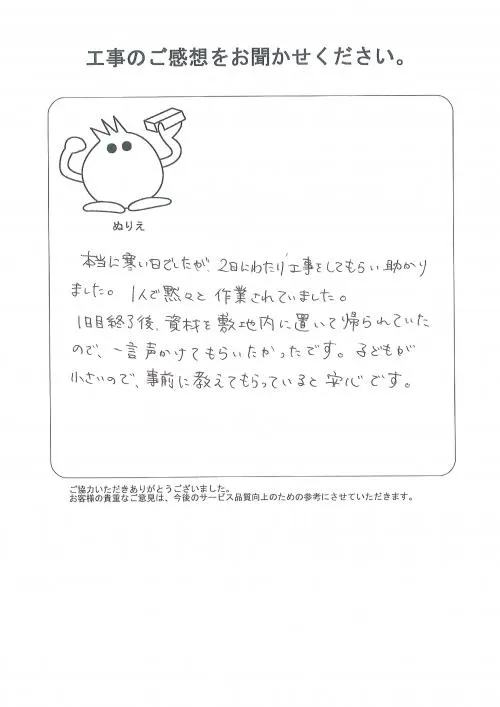 工事のご感想をお聞かせください。
ぬりえ
本当に寒い日でしたが、2日にわたり工事をしてもらい助かり
ました。1人で黙々と作業されていました。
1日目終了後、資材を敷地内に置いて帰られていた
ので、一言声かけてもらいたかったです。子どもが
小さいので、事前に教えてもらっていると安心です。
ご協力いただきありがとうございました。
お客様の貴重なご意見は、今後のサービス品質向上のための参考にさせていただきます。